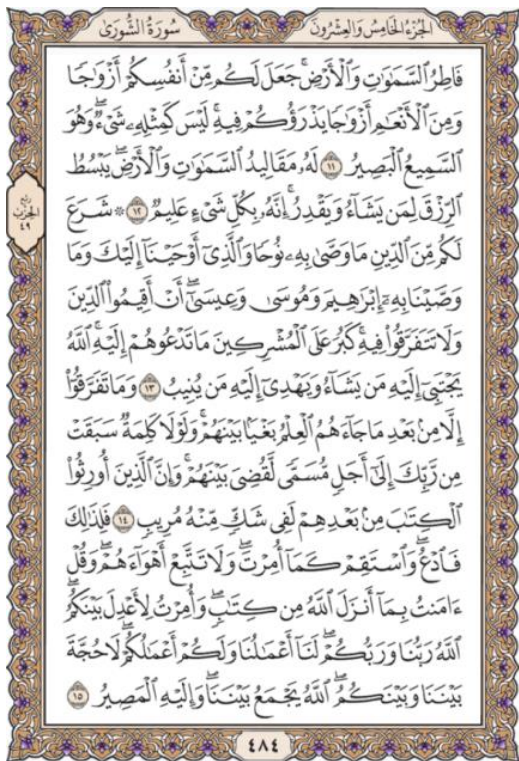 الجُزْءُ الخَامِسُ وَالعِشْرُونَ
سُورَةُ الشُّورَىٰ
فَاطِرُ السَّمَٰوَٰتِ وَالْأَرْضِ ۚ جَعَلَ لَكُم مِّنْ أَنفُسِكُمْ أَزْوَٰجًا
وَمِنَ الْأَنْعَٰمِ أَزْوَٰجًا يَذْرَؤُكُمْ فِيهِ ۚ لَيْسَ كَمِثْلِهِۦ شَىْءٌ ۖ وَهُوَ
السَّمِيعُ الْبَصِيرُ ١١ لَهُۥ مَقَالِيدُ السَّمَٰوَٰتِ وَالْأَرْضِ ۖ يَبْسُطُ
الرِّزْقَ لِمَن يَشَآءُ وَيَقْدِرُ ۚ إِنَّهُۥ بِكُلِّ شَىْءٍ عَلِيمٌ ١٢ ۞ شَرَعَ
لَكُم مِّنَ الدِّينِ مَا وَصَّىٰ بِهِۦ نُوحًا وَالَّذِىٓ أَوْحَيْنَآ إِلَيْكَ وَمَا
وَصَّيْنَا بِهِۦٓ إِبْرَٰهِيمَ وَمُوسَىٰ وَعِيسَىٰٓ ۖ أَنْ أَقِيمُوا۟ الدِّينَ
وَلَا تَتَفَرَّقُوا۟ فِيهِ ۚ كَبُرَ عَلَى الْمُشْرِكِينَ مَا تَدْعُوهُمْ إِلَيْهِ ۚ اللَّهُ
يَجْتَبِىٓ إِلَيْهِ مَن يَشَآءُ وَيَهْدِىٓ إِلَيْهِ مَن يُنِيبُ ١٣ وَمَا تَفَرَّقُوٓا۟
إِلَّا مِنۢ بَعْدِ مَا جَآءَهُمُ الْعِلْمُ بَغْيًۢا بَيْنَهُمْ ۚ وَلَوْلَا كَلِمَةٌ سَبَقَتْ
مِن رَّبِّكَ إِلَىٰٓ أَجَلٍ مُّسَمًّى لَّقُضِىَ بَيْنَهُمْ ۚ وَإِنَّ الَّذِينَ أُورِثُوا۟
الْكِتَٰبَ مِنۢ بَعْدِهِمْ لَفِى شَكٍّ مِّنْهُ مُرِيبٍ ١٤ فَلِذَٰلِكَ
فَادْعُ ۖ وَاسْتَقِمْ كَمَآ أُمِرْتَ ۖ وَلَا تَتَّبِعْ أَهْوَآءَهُمْ ۖ وَقُلْ
ءَامَنتُ بِمَآ أَنزَلَ اللَّهُ مِن كِتَٰبٍ ۖ وَأُمِرْتُ لِأَعْدِلَ بَيْنَكُمُ ۖ
اللَّهُ رَبُّنَا وَرَبُّكُمْ ۖ لَنَآ أَعْمَٰلُنَا وَلَكُمْ أَعْمَٰلُكُمْ ۖ لَا حُجَّةَ
بَيْنَنَا وَبَيْنَكُمُ ۖ اللَّهُ يَجْمَعُ بَيْنَنَا ۖ وَإِلَيْهِ الْمَصِيرُ ١٥
ربع
الحزب
٤٩
٤٨٤